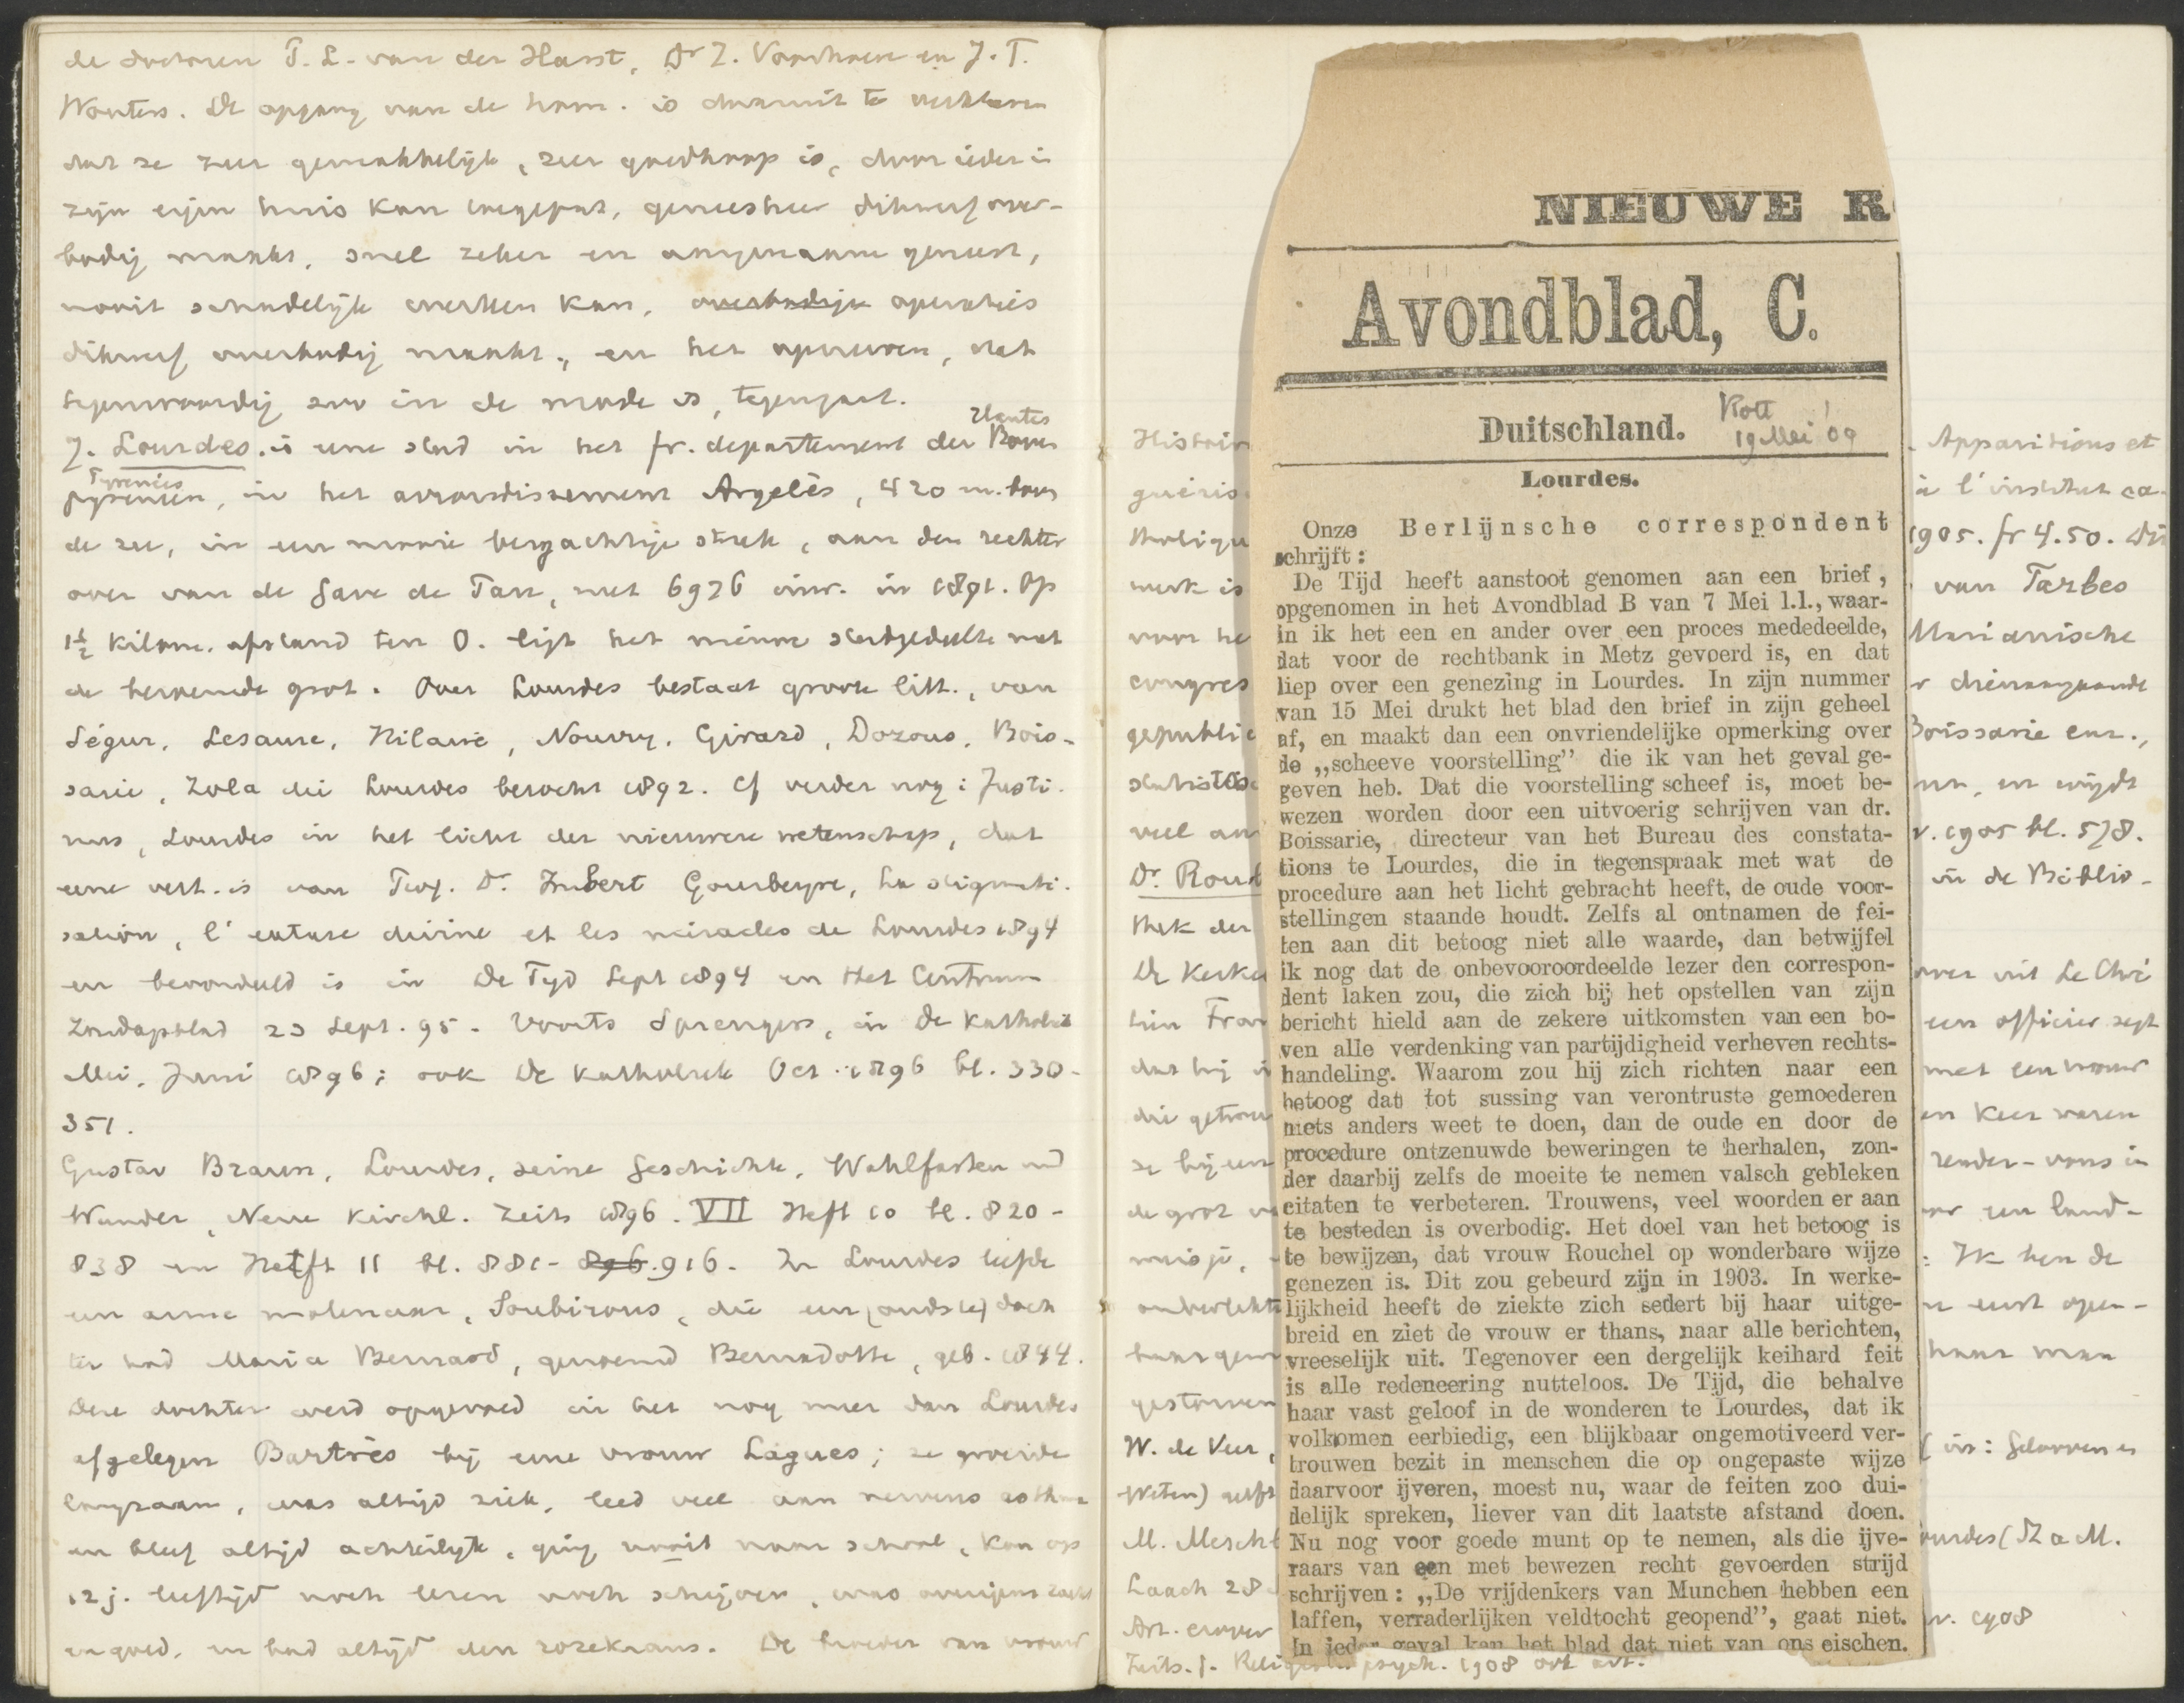 de doctoren T. L. van der Harst, Dr Z. Voorhoeve en J. T.
Wouters. De opgang van de hom. is daaruit te verklaren
dat ze zeer gemakkelijk, zeer goedkoop is, door ieder in
zijn eigen huis kan toegepast, geneesheer dikwerf over-
bodig maakt, snel zeker en aangenaam geneest,
nooit schadelijk werken kan, overbodige operaties
dikwerf overbodig maakt, en het opereren, dat
tegenwoordig zoo in de mode is, tegengaat.
7. Lourdes. is eene stad in het fr. departement der Hautes
Pyrénées, in het arrondissement Argelès, 420 m. boven
de zee, in een mooie bergachtige streek, aan den rechter
oever van de Gave de Pau, met 6976 inw. in 1891. Op
1½ kilom. afstand ten O. ligt het nieuwe stadgedeelte met
de beroemde grot. Over Lourdes bestaat groote litt., van
Ségur, Lesaure, Hilaire, Nourry, Girard, Dozous, Bois-
sarie, Zola die Lourdes bezocht 1892. Cf verder nog: Justi-
nus, Lourdes in het licht der nieuwere wetenschap, dat
eene vert. is van Prof. Dr. Imbert Gourbeyre, La stigmati-
sation, l'extase divine et les miracles de Lourdes 1894
en beoordeeld is in De Tijd Sept 1894 en Het Centrum
Zondagsblad 23 Sept. 95. Voorts Sprengers, in De Katholiek
Mei, Juni 1896; ook De Katholiek Oct. 1896 bl. 330-
351.
Gustav Braun, Lourdes, seine Geschichte, Wahlfarten und
Wunder, Neue Kirchl. Zeits 1896. VII Heft 10 bl. 820-
838 en Heft 11 bl. 881- 896. 916. In Lourdes leefde
een arme molenaar, Soubirous, die een (oudste) doch
ter had Maria Bernard, genoemd Bernadotte, geb. 1844.
Deze dochter werd opgevoed in het nog meer dan Lourdes
afgelegen Bartrès bij eene vrouw Lagues; ze groeide
langzaam, was altijd ziek, leed veel aan nerveus asthma
en bleef altijd achterlijk, ging nooit naar school, kon op
12 j. leeftijd noch lezen noch schrijven, was overigens zacht
en goed, en bad altijd den rozekrans. De broeder van vrouw
NIEUWE R
Avondblad, C.
Duitschland.
Rott
19 Mei '09
Lourdes.
Onze Berlijnsche correspondent
schrijft:
De Tijd heeft aanstoot genomen aan een brief,
opgenomen in het Avondblad B van 7 Mei l.l., waar-
in ik het een en ander over een proces mededeelde,
dat voor de rechtbank in Metz gevoerd is, en dat
liep over een genezing in Lourdes. In zijn nummer
van 15 Mei drukt het blad den brief in zijn geheel
af, en maakt dan een onvriendelijke opmerking over
de „scheeve voorstelling” die ik van het geval ge-
geven heb. Dat die voorstelling scheef is, moet be-
wezen worden door een uitvoerig schrijven van dr.
Boissarie, directeur van het Bureau des constata-
tions te Lourdes, die in tegenspraak met wat de
procedure aan het licht gebracht heeft, de oude voor-
stellingen staande houdt. Zelfs al ontnamen de fei-
ten aan dit betoog niet alle waarde, dan betwijfel
ik nog dat de onbevooroordeelde lezer den correspon-
dent laken zou, die zich bij het opstellen van zijn
bericht hield aan de zekere uitkomsten van een bo-
ven alle verdenking van partijdigheid verheven rechts-
handeling. Waarom zou hij zich richten naar een
betoog dat tot sussing van verontruste gemoederen
niets anders weet te doen, dan de oude en door de
procedure ontzenuwde beweringen te herhalen, zon-
der daarbij zelfs de moeite te nemen valsch gebleken
citaten te verbeteren. Trouwens, veel woorden er aan
te besteden is overbodig. Het doel van het betoog is
te bewijzen, dat vrouw Rouchel op wonderbare wijze
genezen is. Dit zou gebeurd zijn in 1903. In werke-
lijkheid heeft de ziekte zich sedert bij haar uitge-
breid en ziet de vrouw er thans, naar alle berichten,
vreeselijk uit. Tegenover een dergelijk keihard feit
is alle redeneering nutteloos. De Tijd, die behalve
haar vast geloof in de wonderen te Lourdes, dat ik
volkomen eerbiedig, een blijkbaar ongemotiveerd ver-
trouwen bezit in menschen die op ongepaste wijze
daarvoor ijveren, moest nu, waar de feiten zoo dui-
delijk spreken, liever van dit laatste afstand doen.
Nu nog voor goede munt op te nemen, als die ijve-
raars van een met bewezen recht gevoerden strijd
schrijven: „De vrijdenkers van Munchen hebben een
laffen, verraderlijken veldtocht geopend”, gaat niet.
In ieder geval kan het blad dat niet van ons eischen.
Histoir Apparitions et
guéris à l'institut ca-
tholiqu 1905. fr 4.50. Dit
werk is van Tarbes
voor he Marianische
congres
gepublic Boissarie enz.,
statistie en wijdt
veel aan v. 1905 bl. 578.
Dr. Rou in de Biblio-
thek der
De Kerk over uit Le Chré
een officier zegt
dat hij met een vrouw
die getrou en keer waren
ze bij een
de grot een land-
meisje, : Ik ben de
haar man
gestorven
W. de Veer, in: Gelooven en
Weten)
M. Mescht ourdes (St a M.
Laach 28
Art. v. 1908
Zeits. f. Relig psych. 1908 ook art.